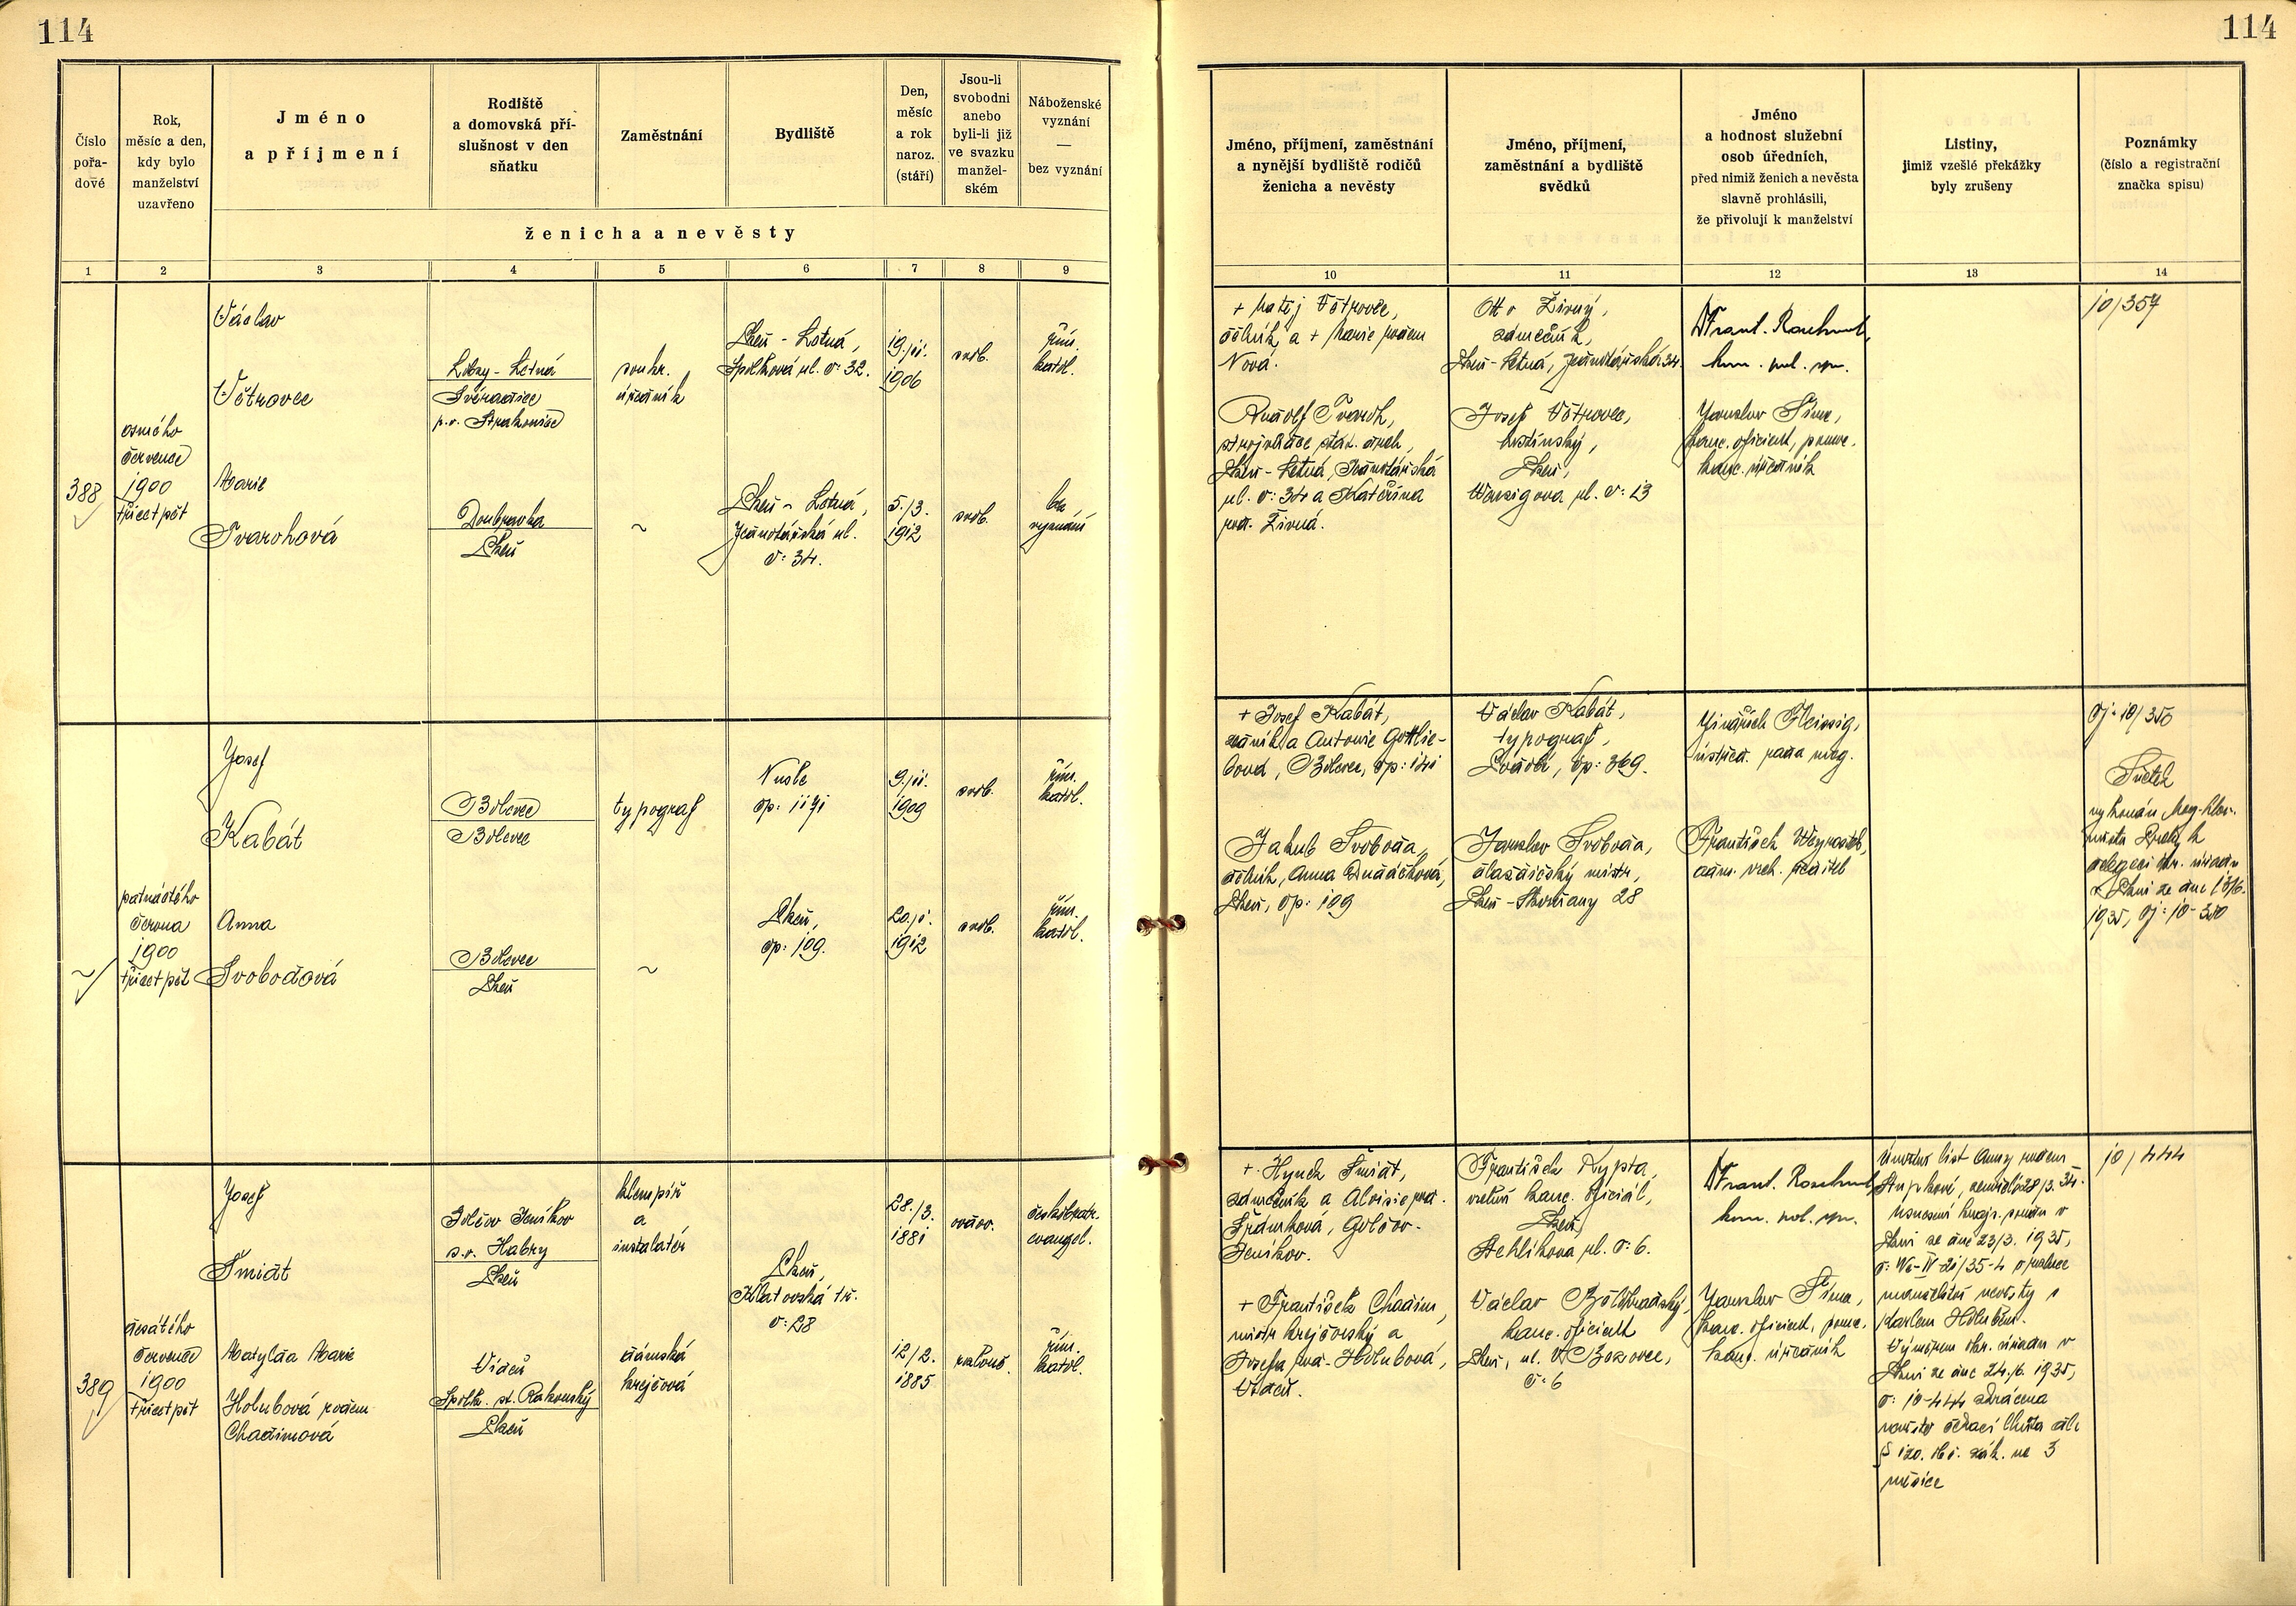 114
114
Číslo
pořa-
dové
Rok,
měsíc a den,
kdy bylo
manželství
uzavřeno
Jméno
a příjmení
Rodiště
a domovská pří-
slušnost v den
sňatku
Zaměstnání
Bydliště
Den,
měsíc
a rok
naroz.
(stáří)
Jsou-li
svobodni
anebo
byli-li již
ve svazku
manžel-
ském
Náboženské
vyznání
—
bez vyznání
ženicha a nevěsty
Jméno, příjmení, zaměstnání
a nynější bydliště rodičů
ženicha a nevěsty
Jméno, příjmení,
zaměstnání a bydliště
svědků
Jméno
a hodnost služební
osob úředních,
před nimiž ženich a nevěsta
slavně prohlásili,
že přivolují k manželství
Listiny,
jimiž vzešlé překážky
byly zrušeny
Poznámky
(číslo a registrační
značka spisu)
1 2 3 4 5 6 7 8 9
10 11 12 13 14
388
osmého
července
1900
třicet pět
Václav
Větrovec
Lobzy - Letná
p.o. Strakonice
soukr.
úředník
Plzeň - Letná,
Spolková ul. č: 32.
19./11.
1906
svob.
řím.
katol.
Marie
Tvarohová
Doubravka
Plzeň
~
Plzeň - Letná,
č: 34.
5./3.
1912
svob.
bez
vyznání
+ Matěj Větrovec,
dělník a + Marie rozem
Nová.
Rudolf Tvaroh,
strojvůdce stát. drah,
Plzeň - Letná,
ul. č: 34 a Kateřina
roz. Živná.
Otto Živný,
zámečník,
Plzeň - Letná,
Josef Větrovec,
hostinský,
Plzeň,
ul. č: 13
kom. pol. spr.
Jaroslav Šíma,
kanc. oficiant, pomoc.
kanc. úředník
10/357
~
patnáctého
června
1900
třicet pět
Josef
Kabát
Bolevec
Bolevec
typograf
Nusle
čp: 1171
9./11.
1909
svob.
řím.
katol.
Anna
Svobodová
Bolevec
Plzeň
~
Plzeň,
čp: 109.
20./1.
1912
svob.
řím.
katol.
+ Josef Kabát,
zedník a Antonie Gottlie-
bová, Bolevec, čp: 141
Jakub Svoboda,
dělník, Anna Dudáčková,
Plzeň, čp: 109
Václav Kabát,
typograf,
čp: 369.
Jaroslav Svoboda,
dlaždičský mistr,
Plzeň - Skvrňany 28
Jindřich Fleissig,
ústřed. rada mag.
František
adm. vrch. ředitel
čj: 10/350
Sňatek
vykonán Mag. hlav.
města Prahy k
delegaci okr. úřadu
v Plzni ze dne 13/6.
1935, čj: 10-350
389
desátého
července
1900
třicet pět
Josef
Šmidt
Golčův Jeníkov
s.o. Habry
Plzeň
klempíř
a
instalatér
Plzeň,
Klatovská tř.
č: 28
28./3.
1881
vdov.
českobratr.
evangel.
Matylda Marie
Holubová rozem
Chadimová
Vídeň
Spolk. st. Rakouský
Plzeň
dámská
krejčová
12/2.
1885
rozlouč.
řím.
katol.
+ Hynek Šmidt,
zámečník a Aloisie roz.
Golčův-
Jeníkov.
+ František Chadim,
mistr krejčovský a
Josefa roz. Holubová,
Vídeň.
František Rypta,
vrchní kanc. oficiál,
Plzeň,
Stehlíkova ul. č: 6.
Václav
kanc. oficiant
Plzeň, ul. B. Bozovce,
č: 6
kom. pol. spr.
Jaroslav Šíma,
kanc. oficiant, pomoc.
kanc. úředník
Úmrtní list Anny rozem
zemřelé 28/3. 34.
Usnesení krajs. soudu v
Plzni ze dne 23/3. 1935,
o rozluce
manželství nevěsty s
Karlem Holubem.
Výměrem okr. úřadu v
Plzni ze dne 24./6. 1935,
č: 10-444 zkrácena
nevěstě čekací lhůta dle
§ 120. ob. zák. na 3
měsíce
10/444